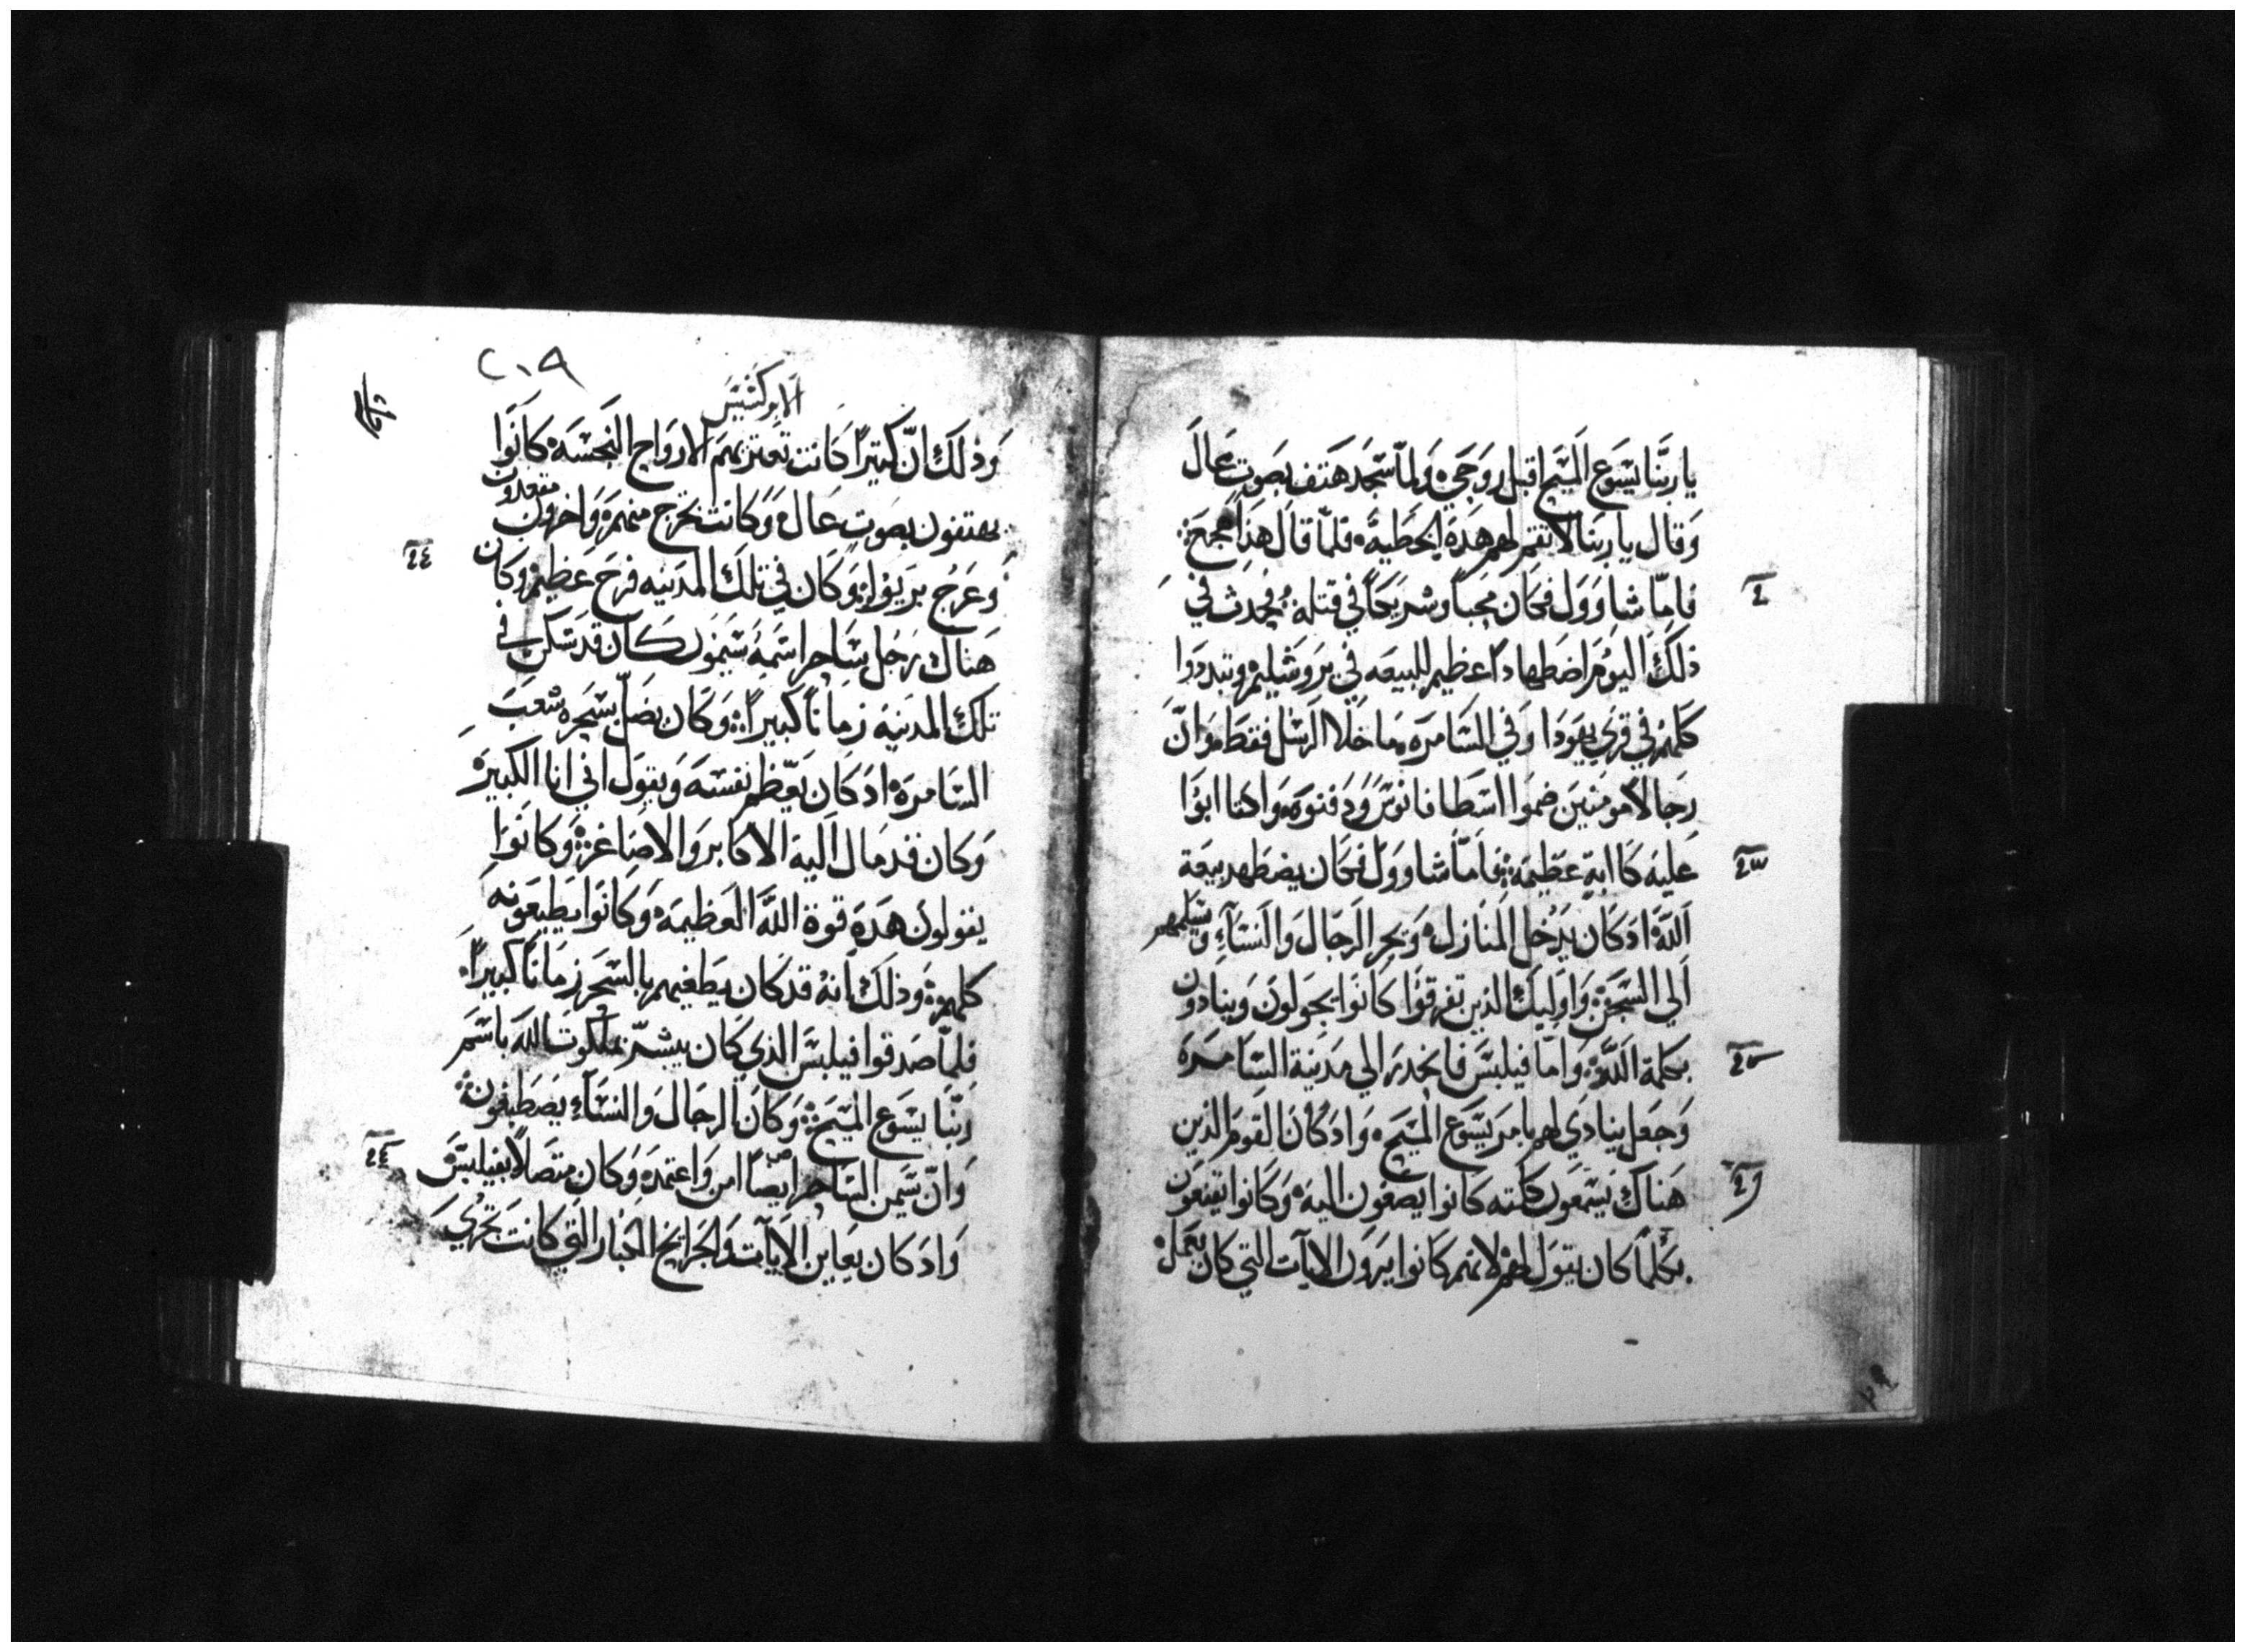 يا ربنا يسوع المسيح اقبل روحي ولما سجد هتف بصوت عال
وقال يا ربنا لا تقم لهم هذه الخطية فلما قال هذا هجع
فاما شاوول فكان محبا وشريكا في قتله فحدث في
ذلك اليوم اضطهادا عظيم للبيعه في يروشليم وتبددوا
كلهم في قري يهودا وفي السامره ما خلا الرسل فقط وان
رجالا مومنين ضموا اسطافانوس ودفنوه واكتاابوا
عليه كاابة عظيمة فاما شاوول فكان يضطهد بيعة
الله اد كان يدخل المنازل ويجر الرجال والنسآء ويسلمهم
الي السجن واوليك الذين تفرقوا كانوا يجولون وينادون
بكلمة الله واما فيلبس فانحدر الي مدينة السامره
وجعل ينادي لهم بامر يسوع المسيح واد كان القوم الذين
هناك يسمعون كلمته كانوا يصغون اليه وكانوا يقنعون
بكلما كان يقول لهم لانهم كانوا يرون الايآت التي كان يعمل
٢١٩
الابركسيس
وذلك ان كثيرا كانت تعتريهم الارواح النجسه كانوا
يهتفون بصوت عال وكانت تخرج منهم واخرون مقعدون
وعرج بريوا وكان في تلك المدينه فرح عظيم وكان
هناك رجل ساحر اسمه سيمون كان قد سكن في
تلك المدينه زمانا كبيرا وكان يضل بسحره شعب
السامره اد كان يعظم نفسه ويقول اني انا الكبير
وكان قد مال اليه الاكابر والاصاغر وكانوا
يقولون هذه قوة الله العظيمه وكانوا يطيعونه
كلهم وذلك انه قد كان يطغيهم بالسحر زمانا كبيرا
فلما صدقوا فيلبس الذي كان يبشر بملكوت الله باسم
ربنا يسوع المسيح وكان الرجال والنسآء يصطبغون
وان سيمن الساحر ايضا امن واعتمد وكان متصلا بفيلبس
واد كان يعاين الايآت والجرايح الكبار التي كانت تجري